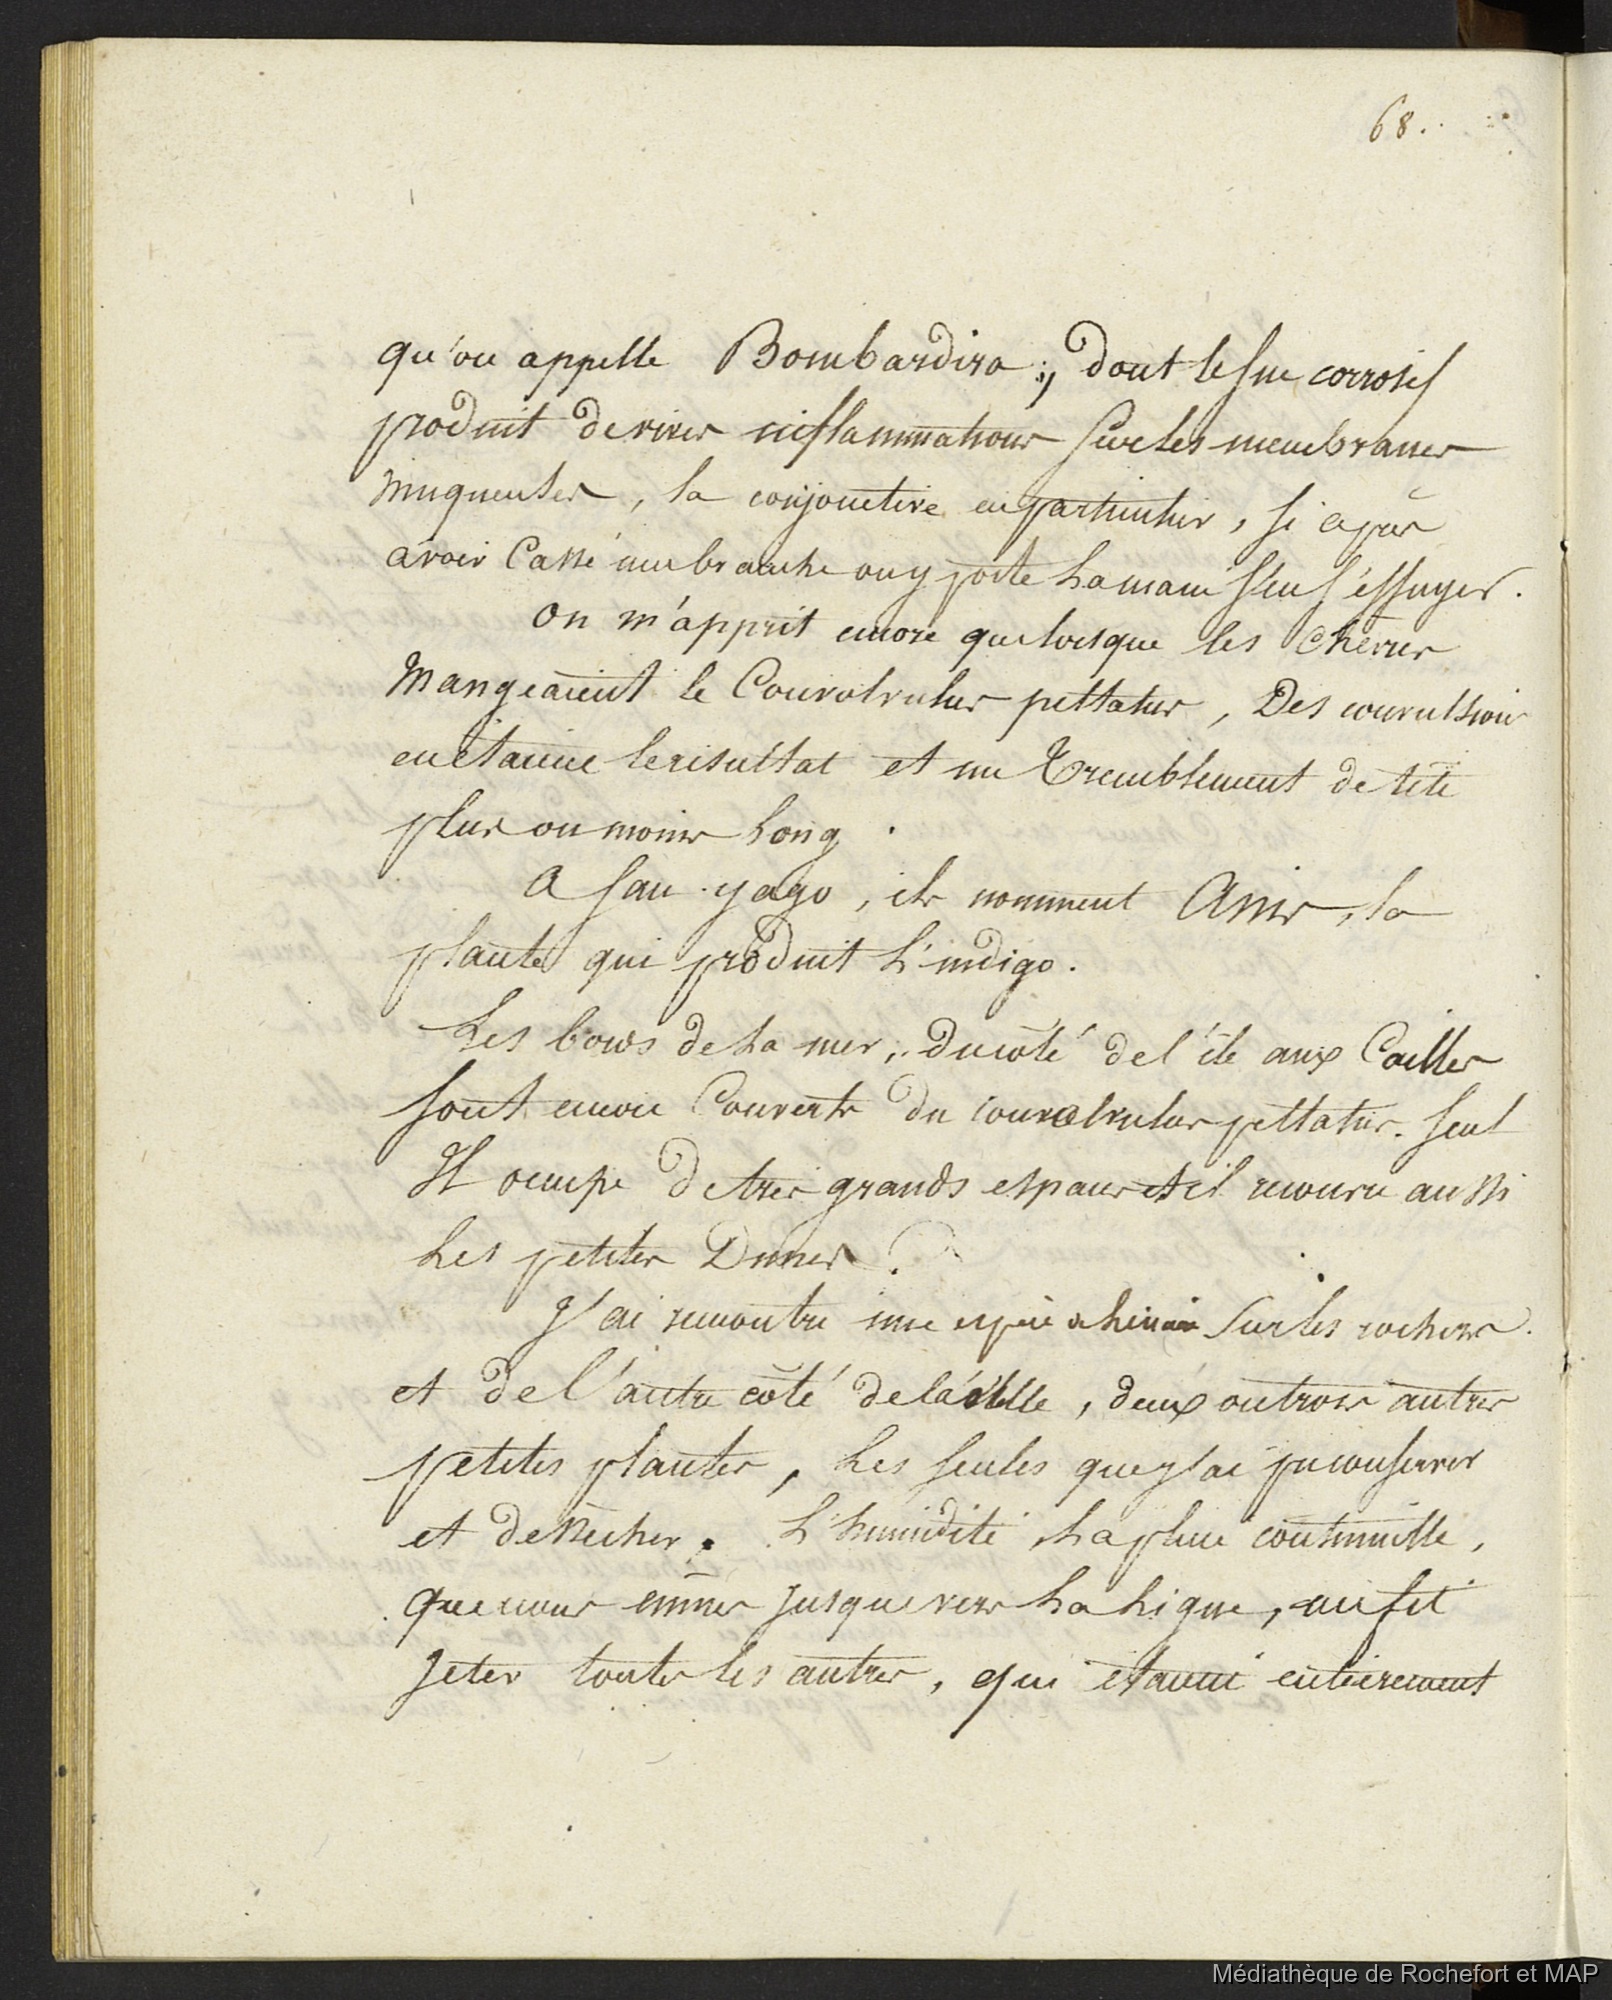 68.
qu'on appelle Bombardira ; dont le suc corrosif
produit de vives inflammations sur les membranes
muqueuses, la conjonctive en particulier, si après
avoir cassé une branche on y porte la main sans s'essuyer.
On m'apprit encore que lorsque les chèvres
mangeaient le Convolvulus peltatus, Des convulsions
en étaient le résultat et un Tremblement de tête
plus ou moins long.
A San-yago, ils nomment Anir, la
plante qui produit l'indigo.
Les bords de la mer, Du côté de l'île aux Cailles
sont encore Couverts du convolvulus peltatus. Seul
Il occupe de très grands espaces et il recouvre aussi
les petites Dunes.
J'ai rencontré une espèce sur les rochers.
et de l'autre côté de la ville, deux ou trois autres
petites plantes, les seules que j'ai pu conserver
et dessécher. L'humidité, la pluie continuelle,
que nous eûmes jusques vers la ligne, me fit
jeter toutes les autres, qui étaient entièrement
Médiathèque de Rochefort et MAP